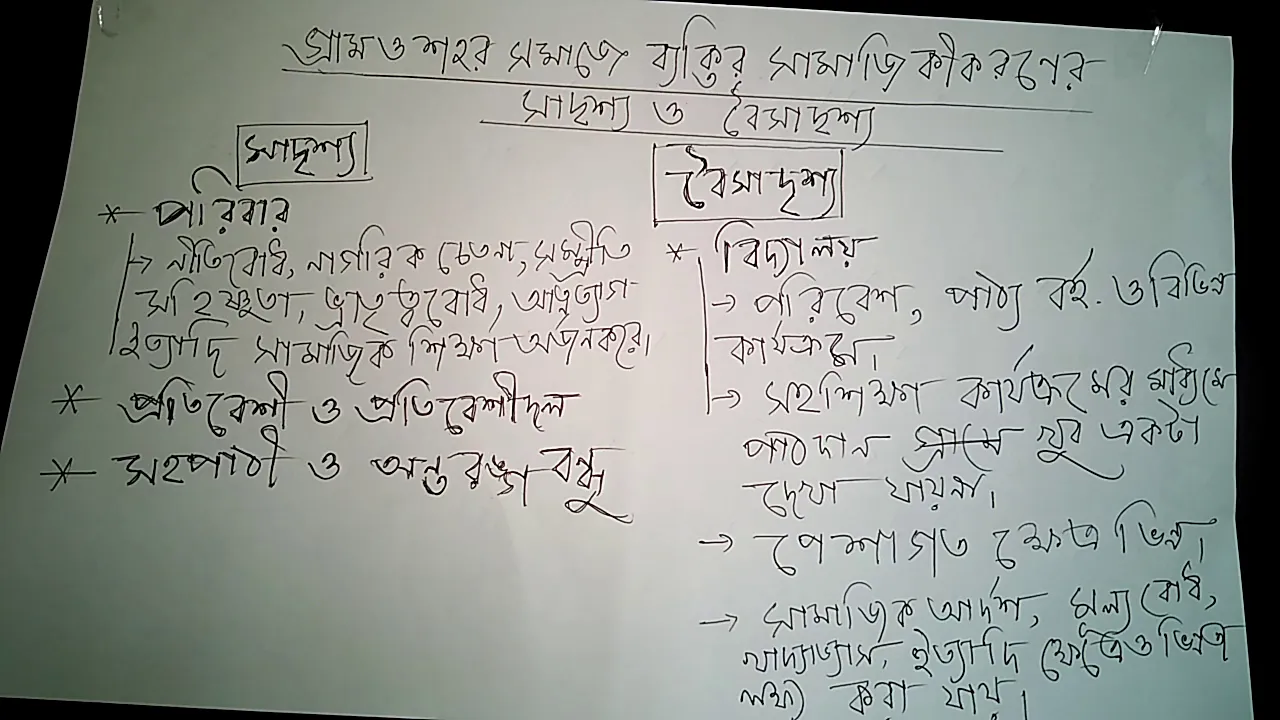 গ্রাম ও শহর সমাজে ব্যক্তির সামাজিকীকরণের
সাদৃশ্য ও বৈসাদৃশ্য
সাদৃশ্য
* পরিবার
→ নীতিবোধ, নাগরিক চেতনা, সম্প্রীতি
সহিষ্ণুতা, ভ্রাতৃত্ববোধ, আত্মত্যাগ
ইত্যাদি সামাজিক শিক্ষা অর্জন করে।
* প্রতিবেশী ও প্রতিবেশীদল
* সহপাঠী ও অন্তরঙ্গ বন্ধু
বৈসাদৃশ্য
* বিদ্যালয়
→ পরিবেশ, পাঠ্য বই. ও বিভিন্ন
কার্যক্রম।
→ সহশিক্ষা কার্যক্রমের মাধ্যমে
পাঠদান গ্রামে খুব একটা
দেখা যায়না।
→ পেশাগত ক্ষেত্র ভিন্ন।
→ সামাজিক আর্দশ, মূল্যবোধ,
খাদ্যাভ্যাস, ইত্যাদি ক্ষেত্রেও ভিন্নতা
লক্ষ্য করা যায়।